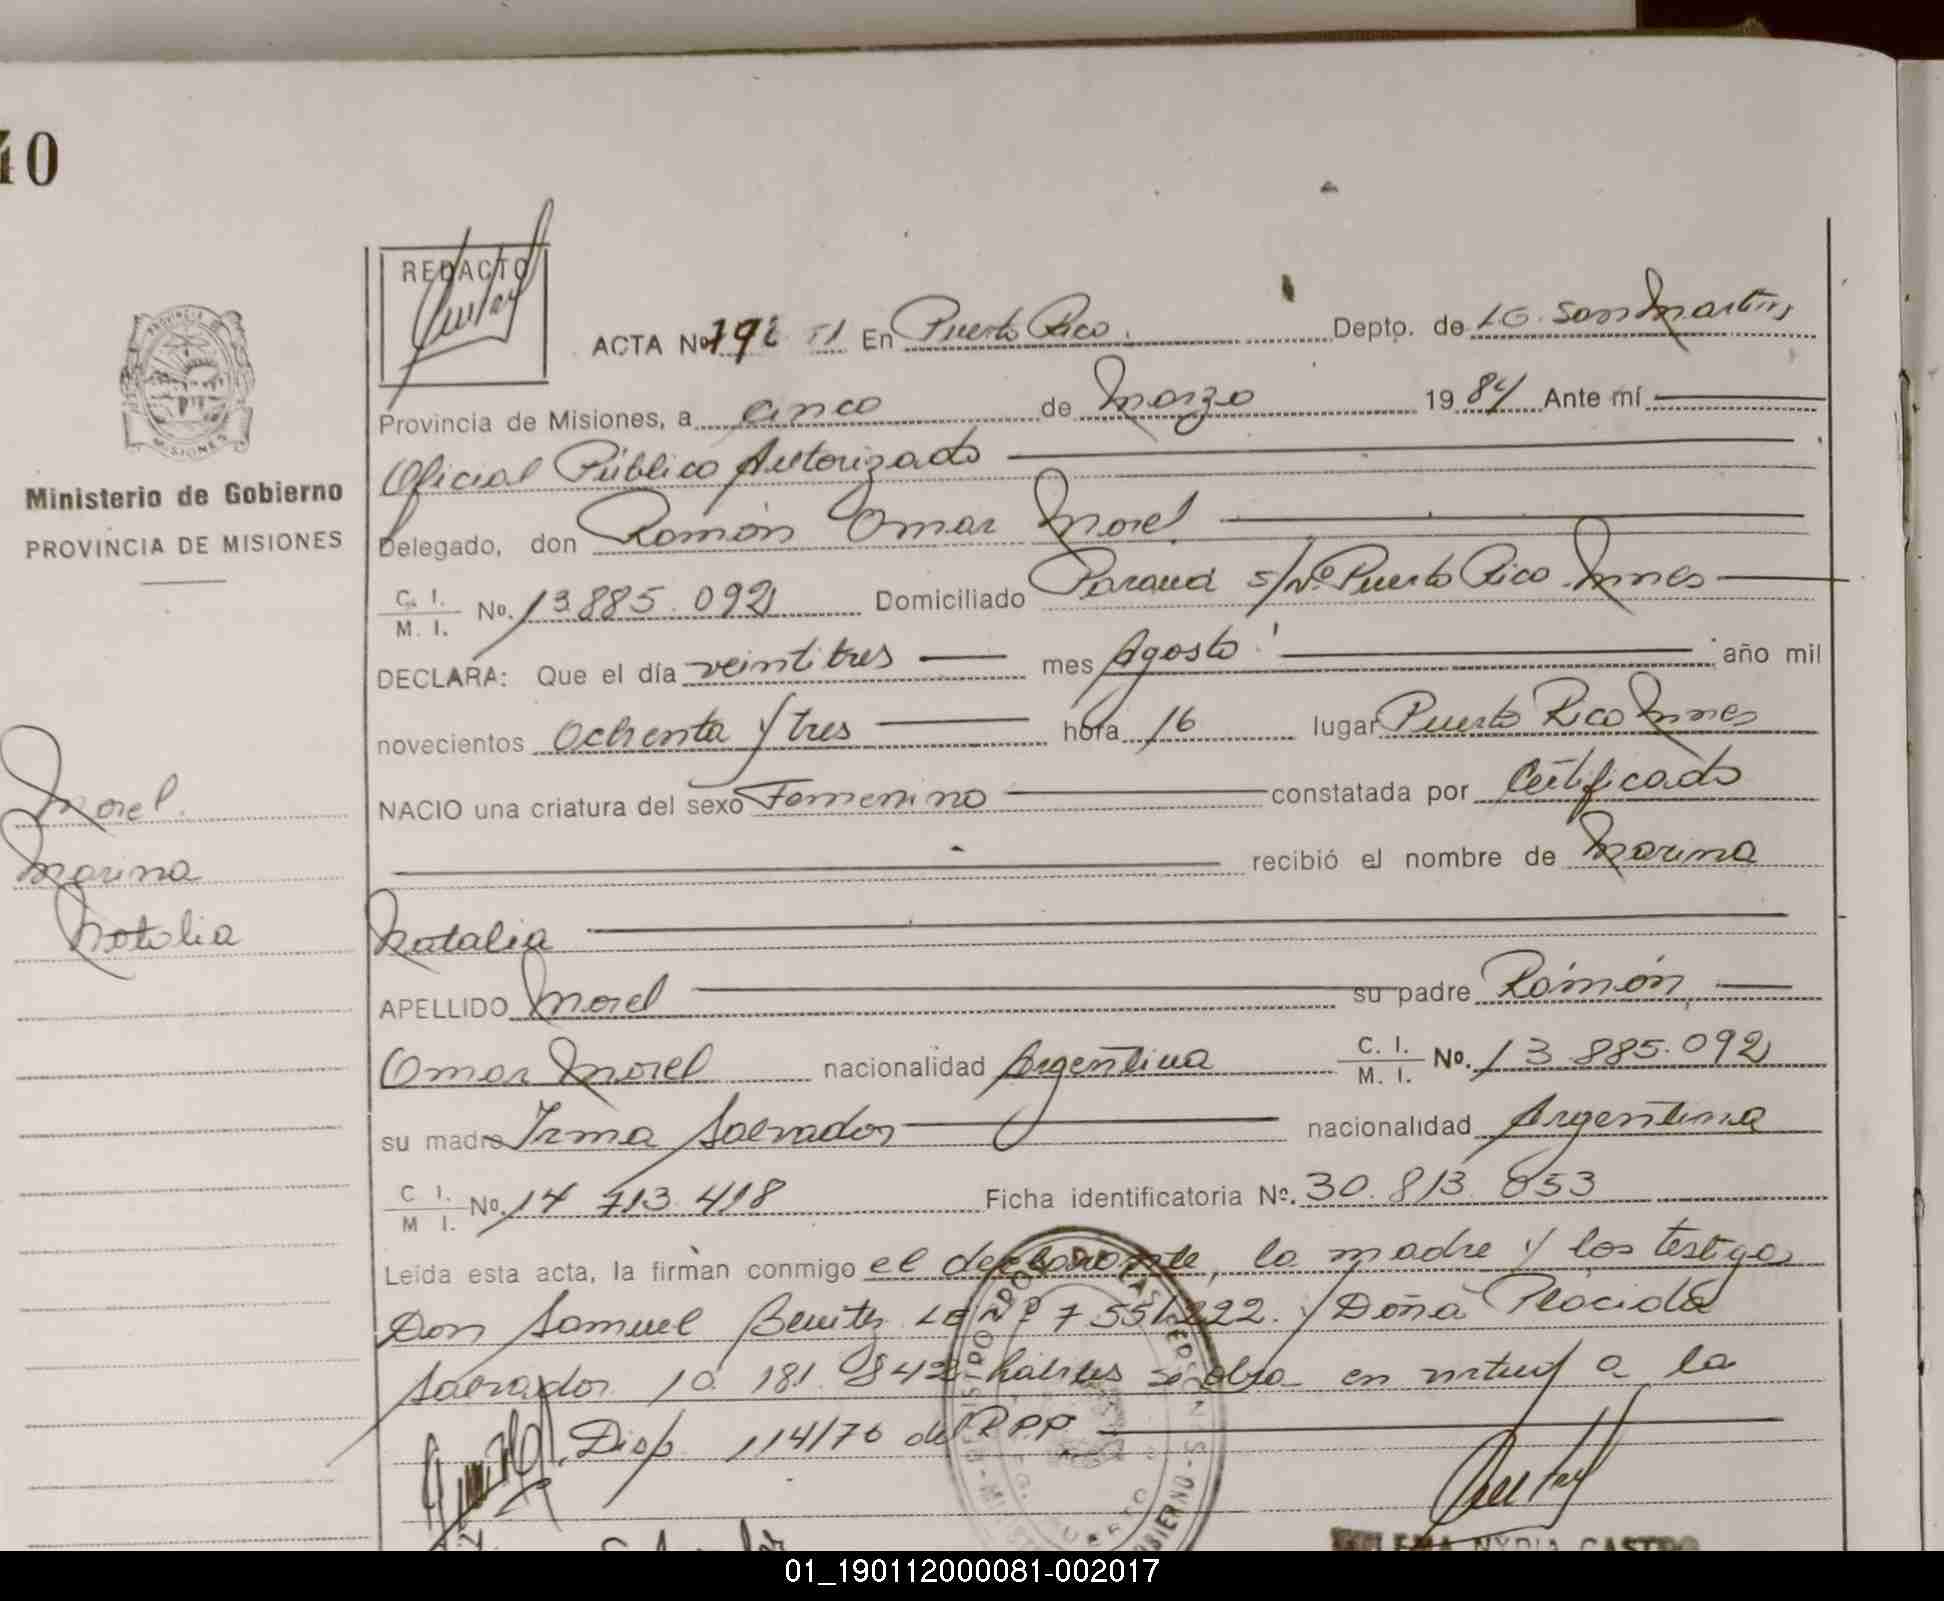 40
REDACTO
ACTA Nº 192 T1 En Puerto Rico. Depto. de LG. San Martin
Provincia de Misiones, a cinco de Marzo 1984 Ante mí
Oficial Público Autorizado
Delegado, don Ramón Omar Morel
C. I. / M. I. No. 13.885.092 Domiciliado Paraná s/Nº Puerto Rico Mnes
DECLARA: Que el día veintitres mes Agosto año mil
novecientos Ochenta y tres hora 16 lugar Puerto Rico Mnes
NACIO una criatura del sexo Femenino constatada por Certificado
recibió el nombre de Marina
Natalia
APELLIDO Morel su padre Ramón
Omar Morel nacionalidad Argentina C. I. / M. I. No. 13.885.092
su madre Irma Salvador nacionalidad Argentina
C I. / M I. No. 14 713.418 Ficha identificatoria Nº. 30.813.053
Leída esta acta, la firman conmigo el declarante, la madre y los testigos
Don Samuel Benitez LE Nº 7 551.222. y Doña Plácida
Salvador 10.181.842 habiles se labra en virtud a la
Disp. 114/76 del R.P.P.
PROVINCIA DE MISIONES
Ministerio de Gobierno
PROVINCIA DE MISIONES
Morel
Marina
Natalia
NYDIA CASTRO
01_190112000081-002017